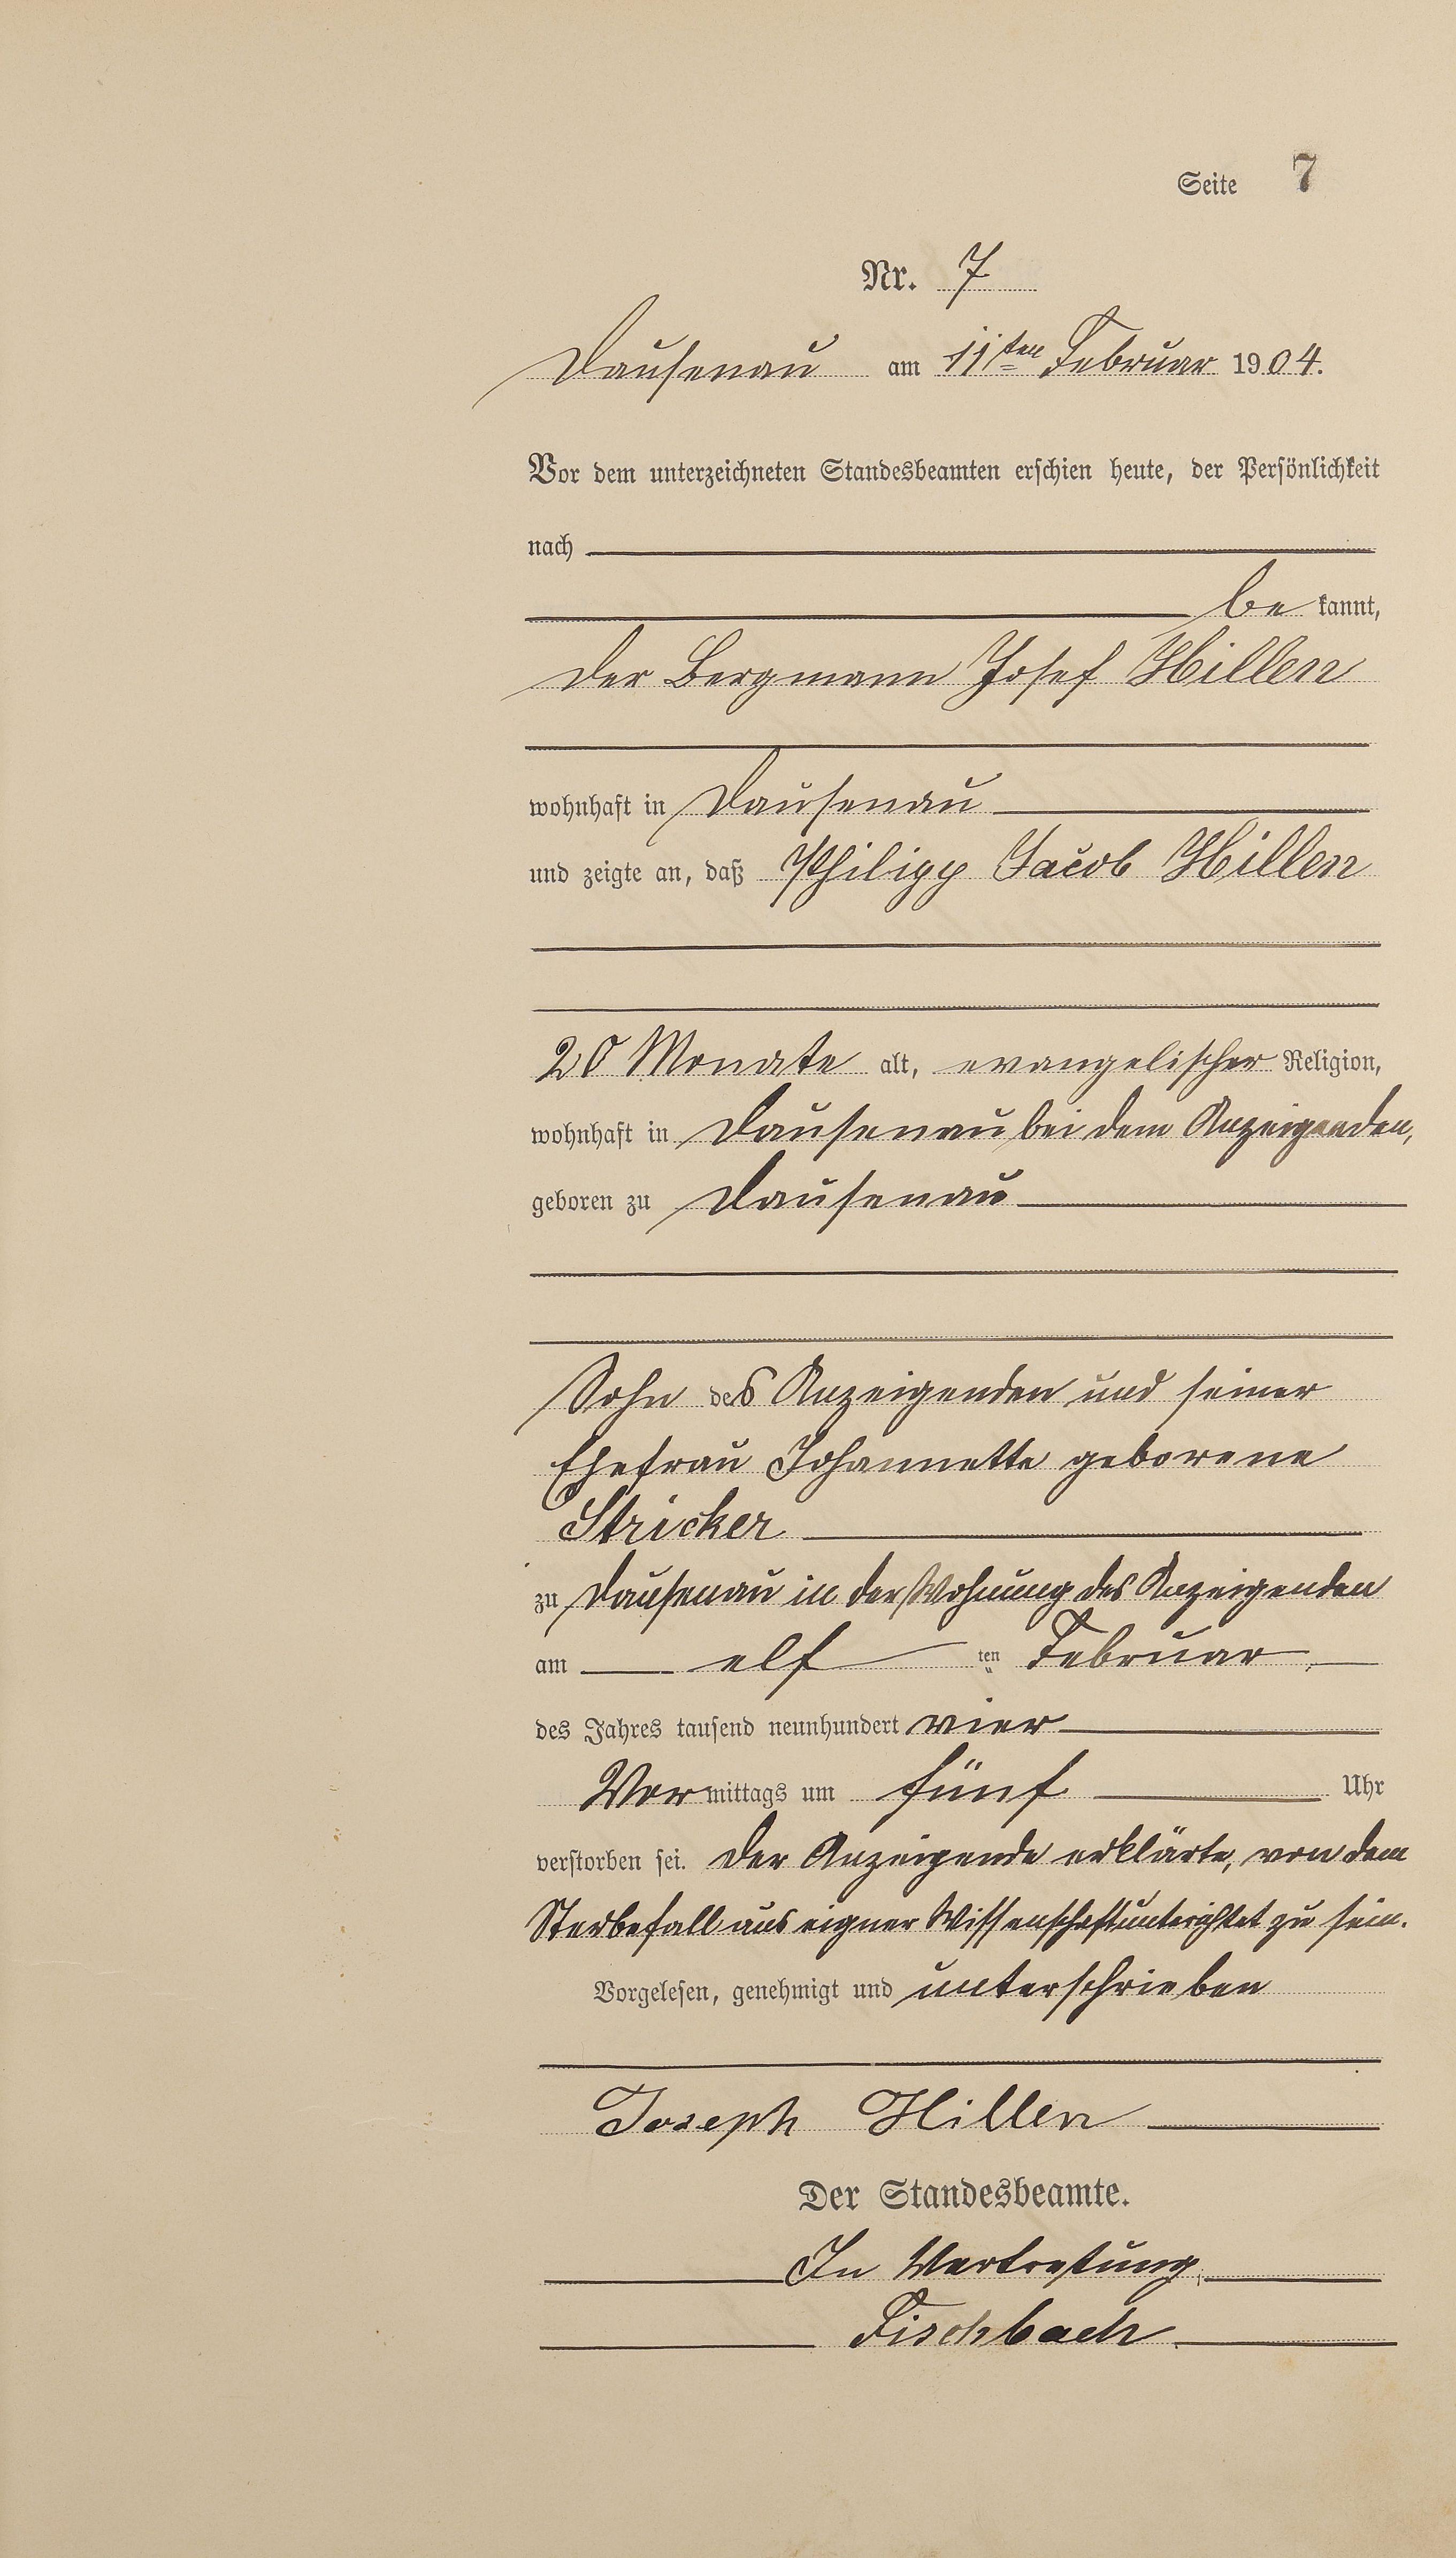 Seite 7
Nr. 7
Dausenau am 11ten Februar 1904.
Vor dem unterzeichneten Standesbeamten erschien heute, der Persönlichkeit
nach
be kannt,
der Bergmann Josef Hillen
wohnhaft in Dausenau
und zeigte an, daß Philipp Jacob Hillen
20 Monate alt, evangelischer Religion,
wohnhaft in Dausenau bei dem Anzeigenden,
geboren zu Dausenau
Sohn des Anzeigenden und seiner
Ehefrau Johannette geborene
Stricker
zu Dausenau in der Wohnung des Anzeigenden
am elf ten Februar
des Jahres tausend neunhundert vier
Vormittags um fünf Uhr
verstorben sei. Der Anzeigende erklärte, von dem
Sterbefall aus eigner Wissenschaft unterichtet zu sein.
Vorgelesen, genehmigt und unterschrieben
Joseph Hillen
Der Standesbeamte.
In Vertretung
Fischbach